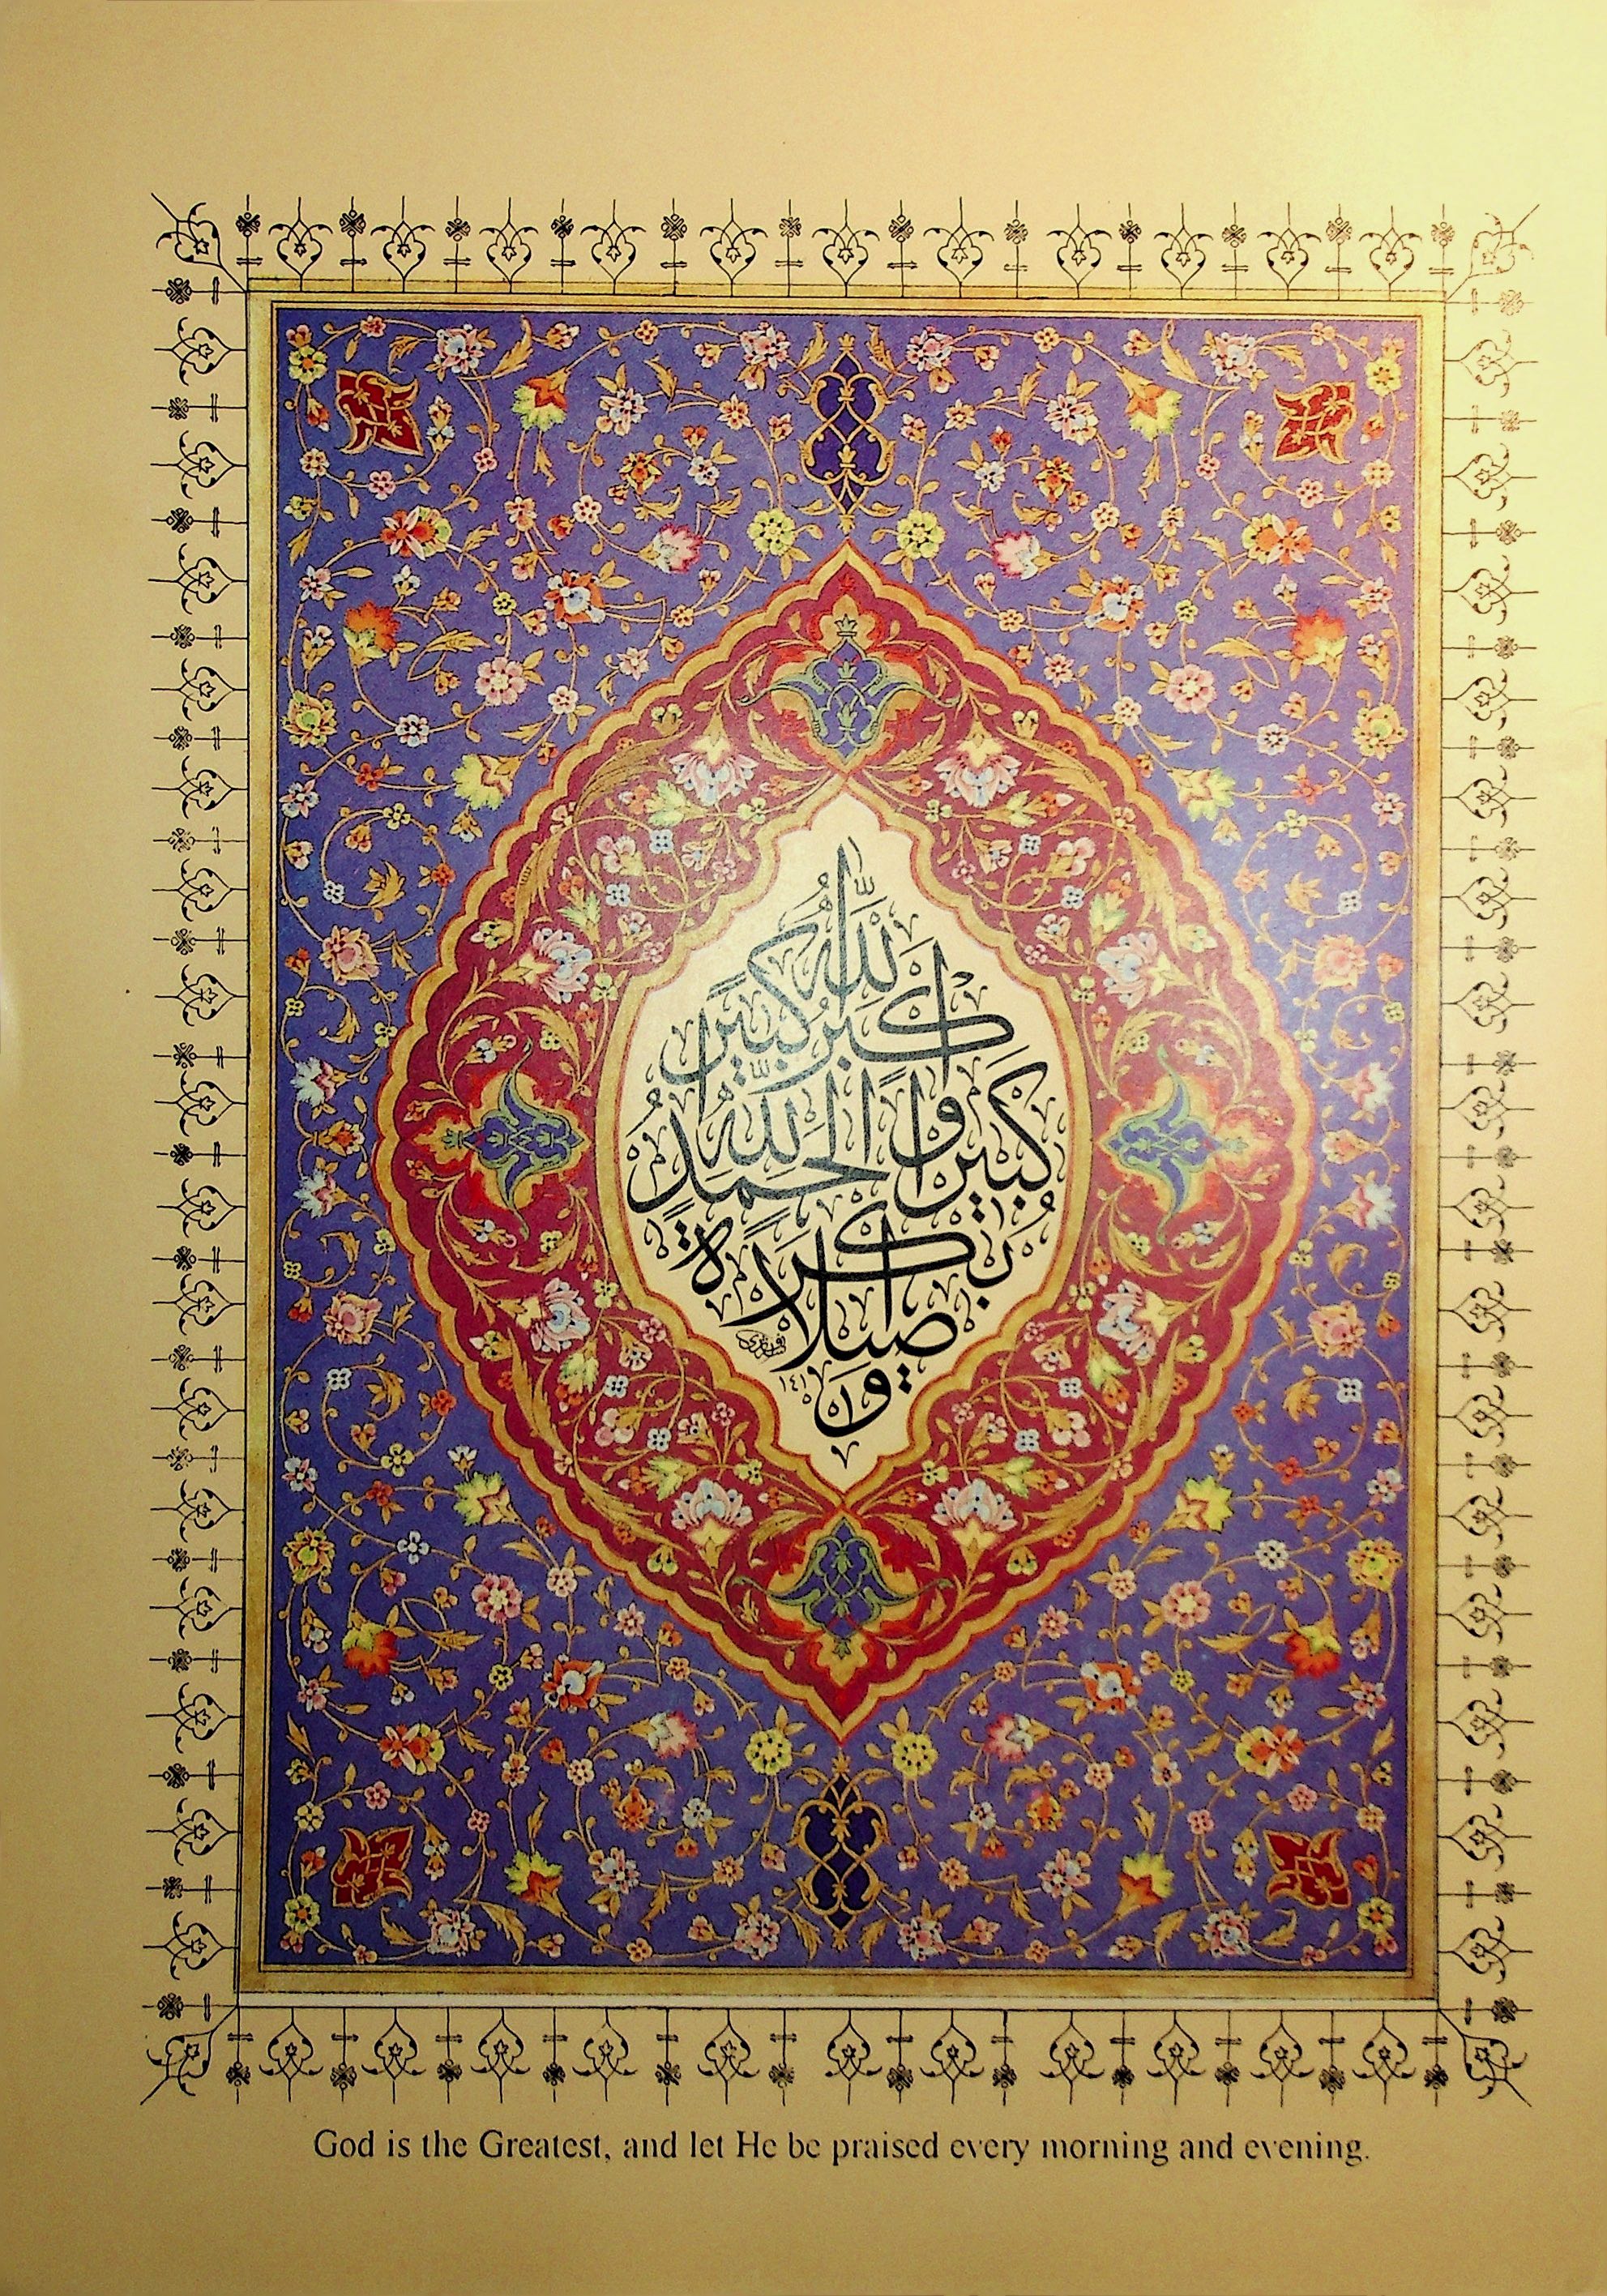 الله
اكبر كبيرا
كبيرا و الحمد لله
بكرة
و اصيلا
God is the Greatest, and let He be praised every morning and evening.